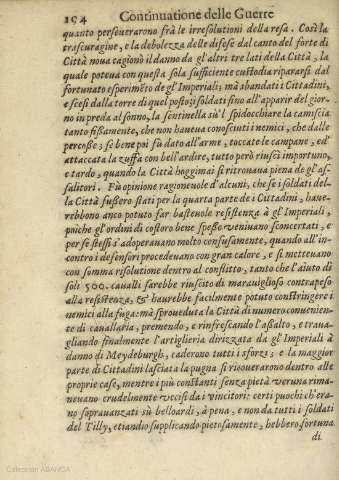 194 Continuatione delle Guerre
quanto perseuerarono frà le irresolutioni della resa. Cosi la
trascuragine, e la debolezza delle difese dal canto del forte di
Città noua cagionò il danno da gl'altri tre lati della Città, la
quale poteua con questa sola sufficiente custodia ripararsi dal
fortunato esperimẽto de gl'Imperiali; mà sbandati i Cittadini,
e scesi dalla torre di quel posto i soldati sino all'apparir del gior-
no in preda al sonno, la sentinella sù'l spidocchiare la camiscia
tanto fissamente, che non haueua conosciuti i nemici, che dalle
percosse; se bene poi fù dato all'arme, toccate le campane, ed'
attaccata la zuffa con bell'ardire, tutto però riuscì importuno,
e tardo, quando la Città hoggimai si ritrouaua piena de gl'as-
salitori. Fù opinione ragioneuole d'alcuni, che se i soldati del-
la Città fussero stati per la quarta parte de i Cittadini, haue-
rebbono anco potuto far basteuole resistenza à gl'Imperiali,
poiche gl'ordini di costoro bene spesso veniuano sconcertati, e
per se stessi s'adoperauano molto confusamente, quando all'in-
contro i defensori procedeuano con gran calore, e si metteuano
con somma risolutione dentro al conflitto, tanto che l'aiuto di
soli 500. caualli sarebbe riuscito di marauiglioso contrapeso
alla resistenza, & haurebbe facilmente potuto constringere i
nemici alla fuga: mà sproueduta la Città di numero conueniente
di cauallaria, premendo, e rinfrescando l'assalto, e traua-
gliando finalmente l'artiglieria dirizzata da gl'Imperiali à
danno di Meydeburgh, caderono tutti i sforzi; e la maggior
parte di Cittadini lasciata la pugna si ricouerarono dentro alle
proprie case, mentre i più constanti senza pietà veruna rima-
neuano crudelmente vccisi da i vincitori: certi puochi ch'era-
no soprauanzati sù belloardi, à pena, e non da tutti i soldati
del Tilly, etiandio supplicando pietosamente, hebbero fortuna
di
Colección ABANCA